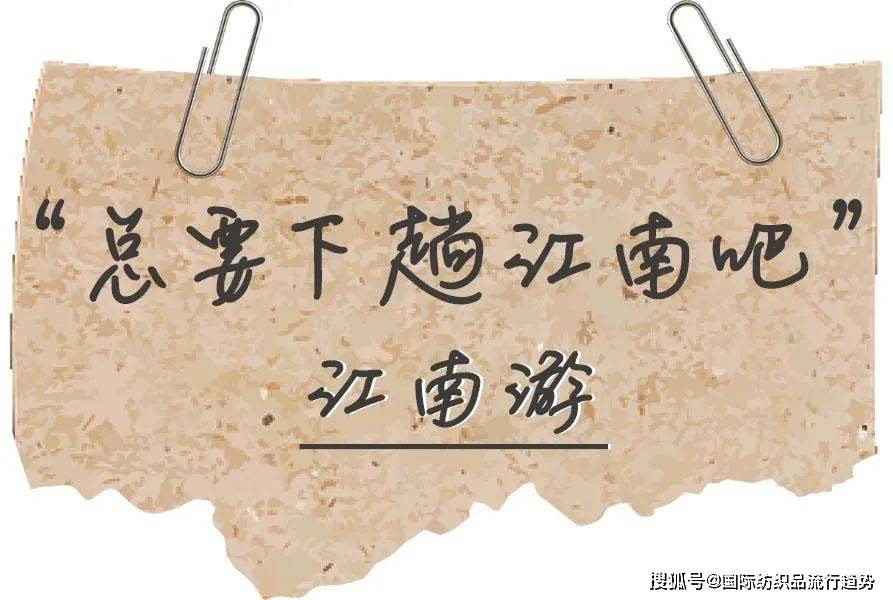 “总要下趟江南吧”
江南游
搜狐号@国际纺织品流行趋势